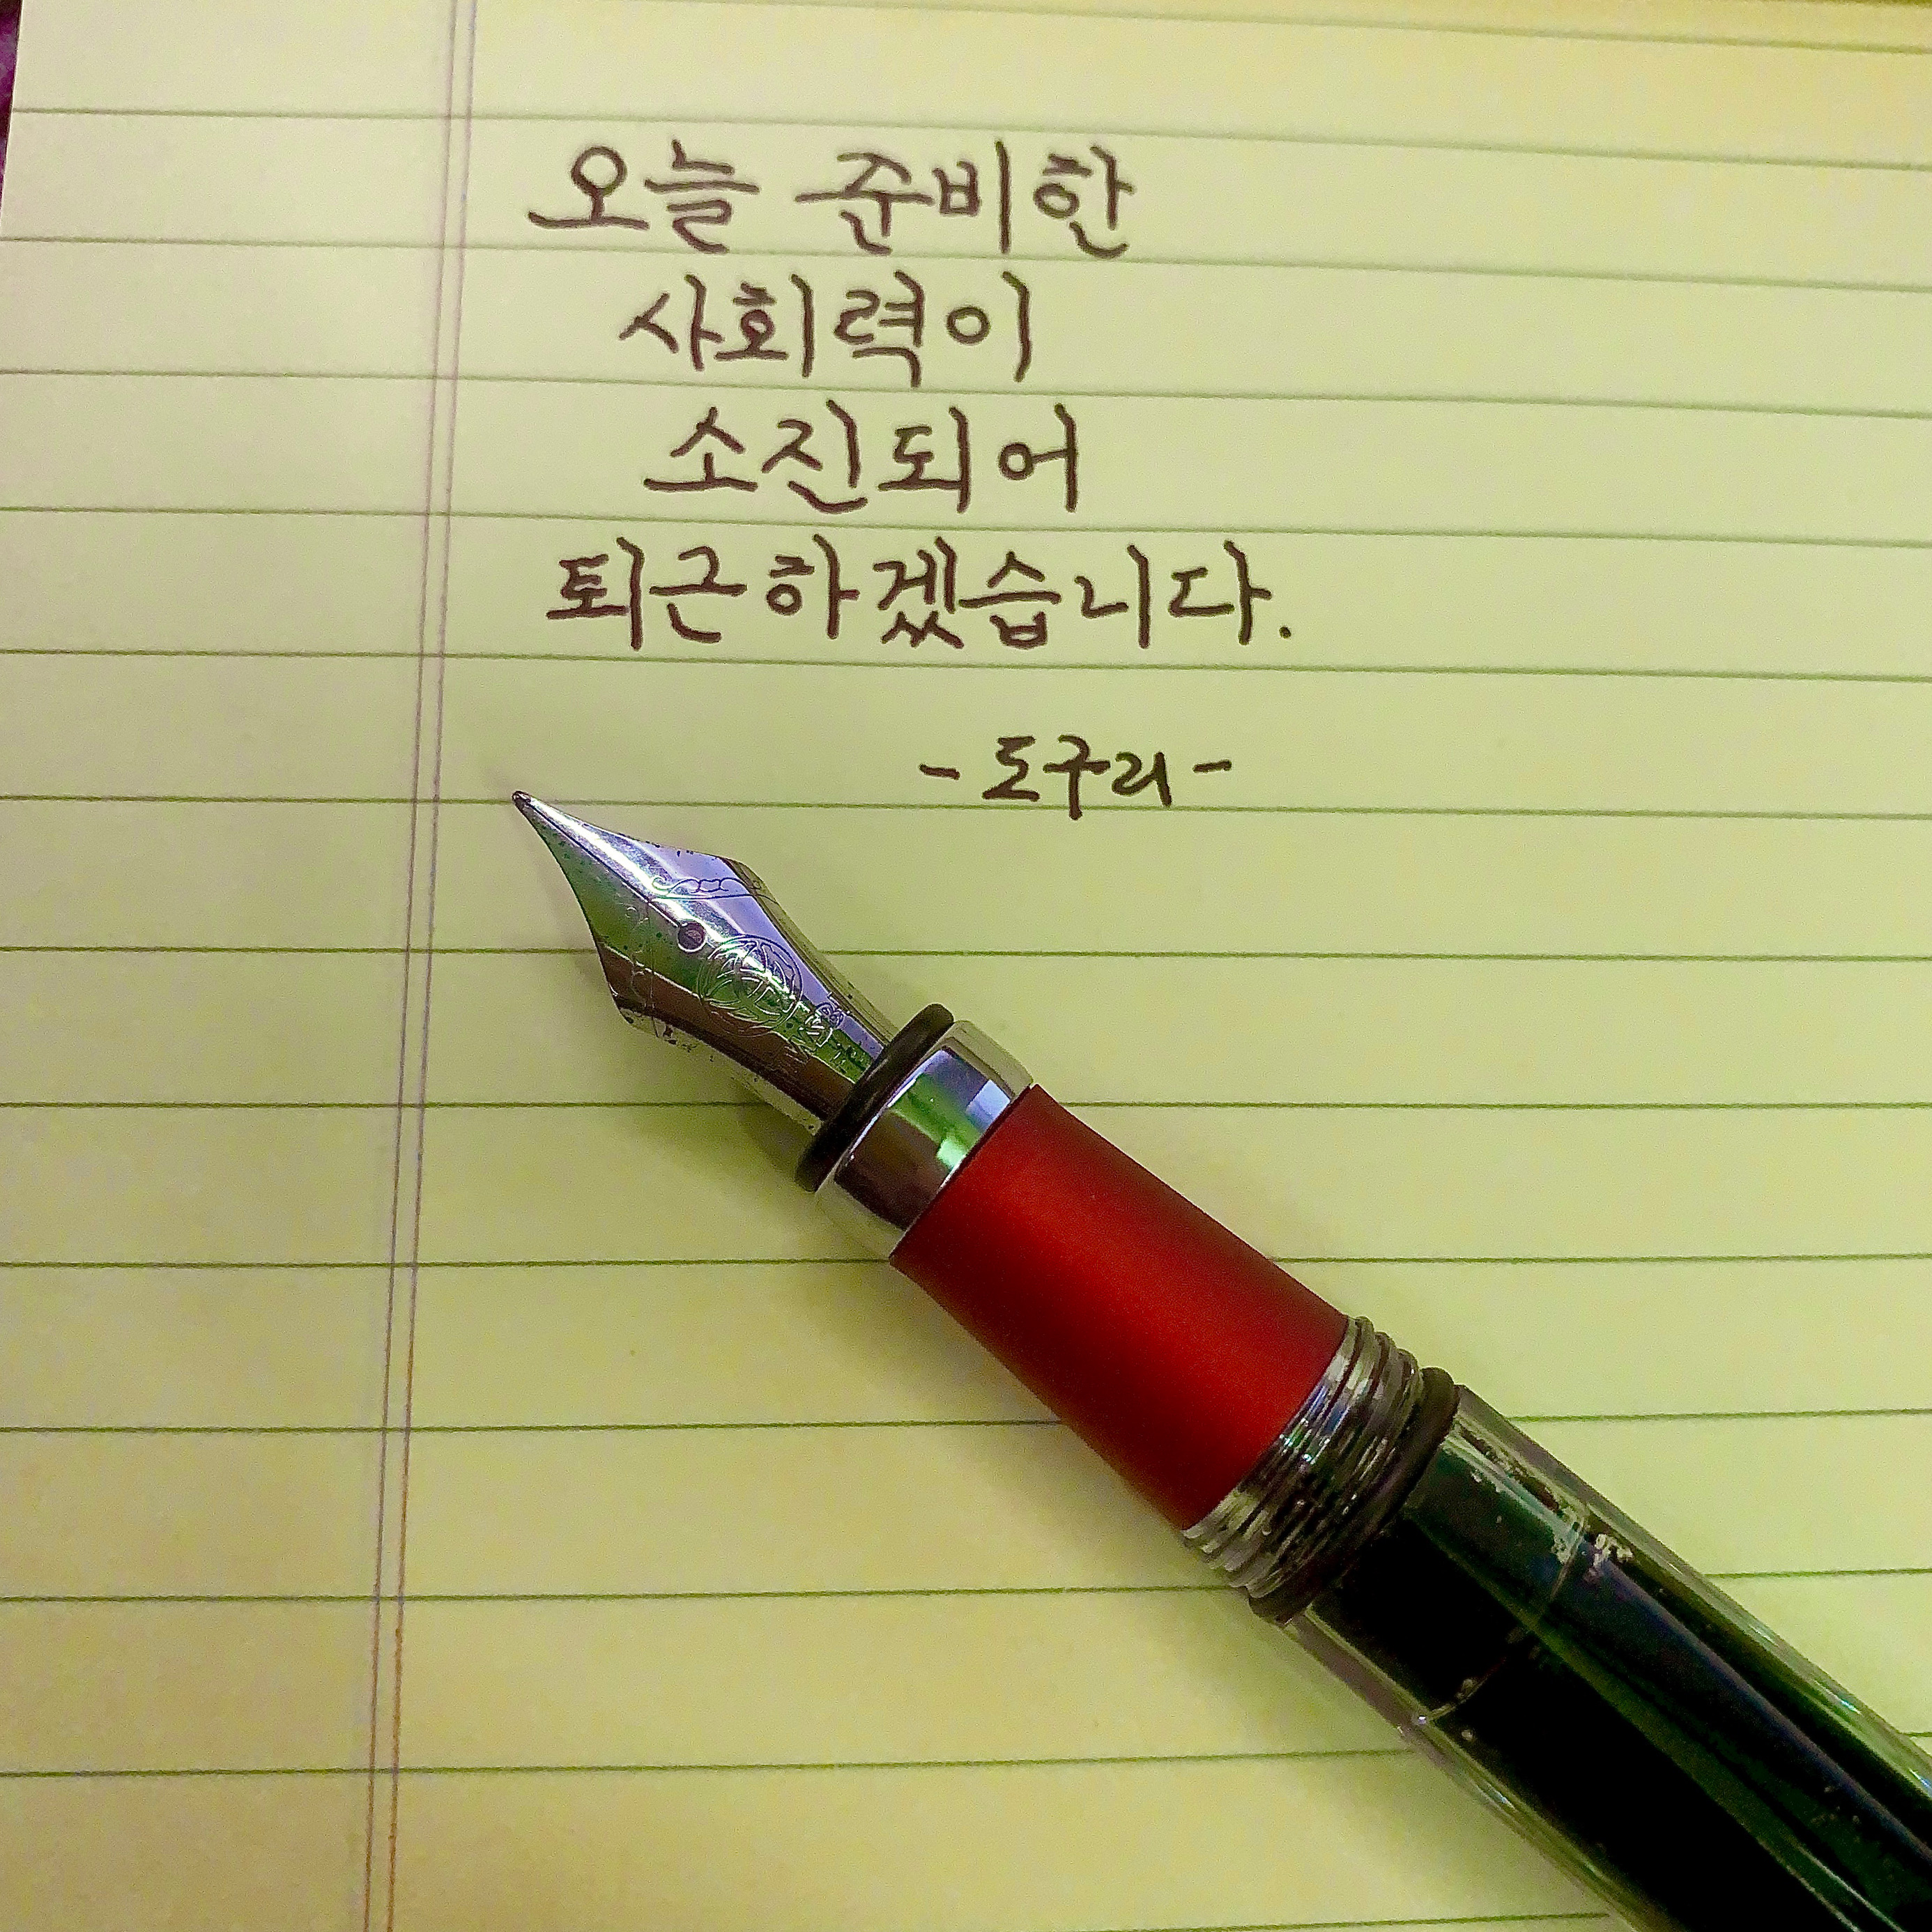 오늘 준비한
사회력이
소진되어
퇴근하겠습니다.
- 도구리 -